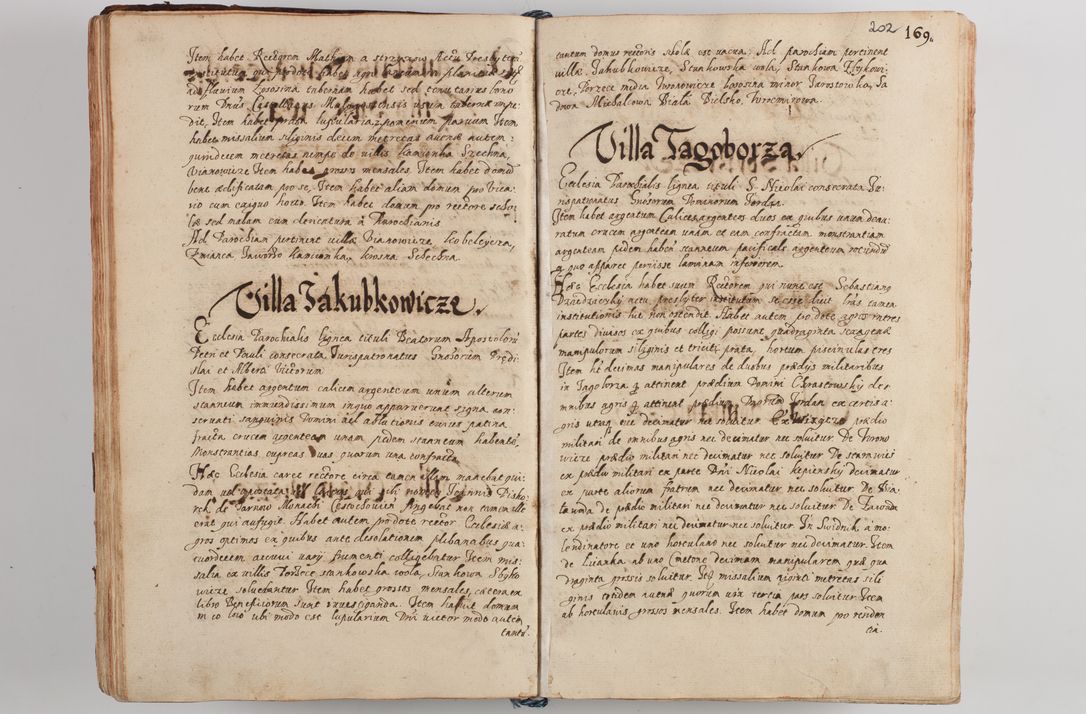 Item habet Rectorem Mathiam a Strzezow Actu Presbyterū
institutum
ad fluvium Lososina tabernam habet sed
rum Dnus Castellanus usum tabernæ impe-
dit, Item habet lupularia, parvum Item
habet missalium siliginis decem metretas avenæ autem
quindecim metretas nempe de villis Kamionka Szechna,
Item habet grossos mensales. Item habet domū
bene ædificatam pro se, Item habet aliam domum pro vica-
rio cum exiguo horto. Item habet domum pro rectore scho-
læ sed malam cum clericatura a Parochianis.
Ad Parochian pertinent villæ
Zmiaca Jaworzo Kamionka, krosna Sechna.
Villa Jakubkowicze.
Ecclesia Parochialis lignea tituli Beatorum Apostolorū
Petri et Pauli consecrata Jurispatronatus Gnsorum Prædi-
slai et Alberti
Item habet argentum calicem argenteum unum alterum
stanneum immundissimum inquo apparuerunt signa con-
servati sanguinis Domini vel ablutionis eucius patina
fracta crucem argenteam unam pedem stanneum habentē
Monstrantias cupreas duas quarum una confracta.
Hæc Ecclesia caret rectore circa eam
dam vel apostata
de Tarnow Monachi
erat qui aufugit. Habet autem pro dote rector Ecclesiæ a-
gros optimos ex quibus ante desolationem plebanalus qua-
tuordecem acervi varÿ frumenti colligebatur Item mis-
salia ex villis Porzece stankowska wola, Stankowa Zbyko-
wicze solvebantur Item habet grossos mensales, cætera ex
libro Beneficiorum sunt investiganda. Item habuit domum
in eo loco ubi modo est lupularium Dni victor modo autem
tantū
202 169.
tantum domus rectoris scholæ est vacua. Ad parochiam pertinent
villæ Jakubkowicze, Stankowska wola, Stankowa Zbykowi-
cze, Porzece media Lososina minor Jarostowka, Sa-
dowa Michalowa Biala Bielsko,
Villa Tagoborza.
Ecclesia Parochialis lignea tituli S. Nicolai consecrata Ju-
rispatronatus Gnsorum Dominorum Jordan.
Item habet argentum Calices argenteos duos ex quibus unum deau-
ratum crucem argenteam unam et eam confractam monstrantiam
argenteam pedem habens stanneum pacificale argenteum rotundū
ex quo apparet periisse laminam inferiorem.
Hæc Ecclesia habet suum Rectorem qui nunc est Sebastiano
actu presbyter institutum se esse dicit lras tamen
institutionis hic non ostendit. Habet autem pro dote agros in tres
partes divisos ex quibus colligi possunt quadraginta sexagenæ
manipulorum siliginis et tritici prata, hortum piscinulas tres
Item ht decimas manipulares de duobus prædÿs militaribus
in Tagoborza q attinent prædium Domini Chrastowsky de o-
mnibus agris q attinent prædium Dnorum Jordan ex certis a-
gris utaq nec decimatur nec solvitur prædio
militari de omnibus agris nec decimatur nec solvitur De
wicze prædio militari nec decimatur nec solvitur De
ex prædio militari ex parte Dni Nicolai decimatur
ex parte aliorum fratrum nec decimatur nec solvitur. De
de prædio militari nec decimatur nec solvitur De
ex prædio militari nec decimatur nec solvitur In Swidnik a mo-
lendinatore et uno hortulano nec solvitur nec decimatur. Item
de ab uno Cmetone decimam manipularem quæ qua-
draginta grossis solvitur Itē missalium viginti metretas sili-
ginis totidem avenæ quorum vix tertia pars solvitur Item
ab hortulanis grossos mensales. Item habet domum pro residen-
tia.